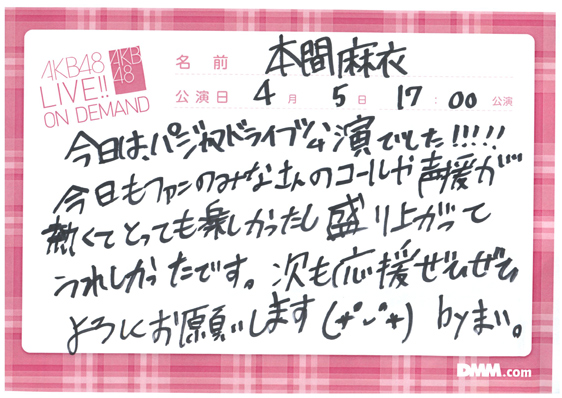 AKB48
LIVE!!
ON DEMAND
AKB
48
名前 本間麻衣
公演日 4月 5日 17:00 公演
今日は、パジャマドライブ公演でした!!!!!
今日もファンのみなさんのコールや声援が
熱くてとっても楽しかったし盛り上がって
うれしかったです。次も応援ぜひぜひ
よろしくお願いします(*˘⌣˘*) byまい。
DMM.com